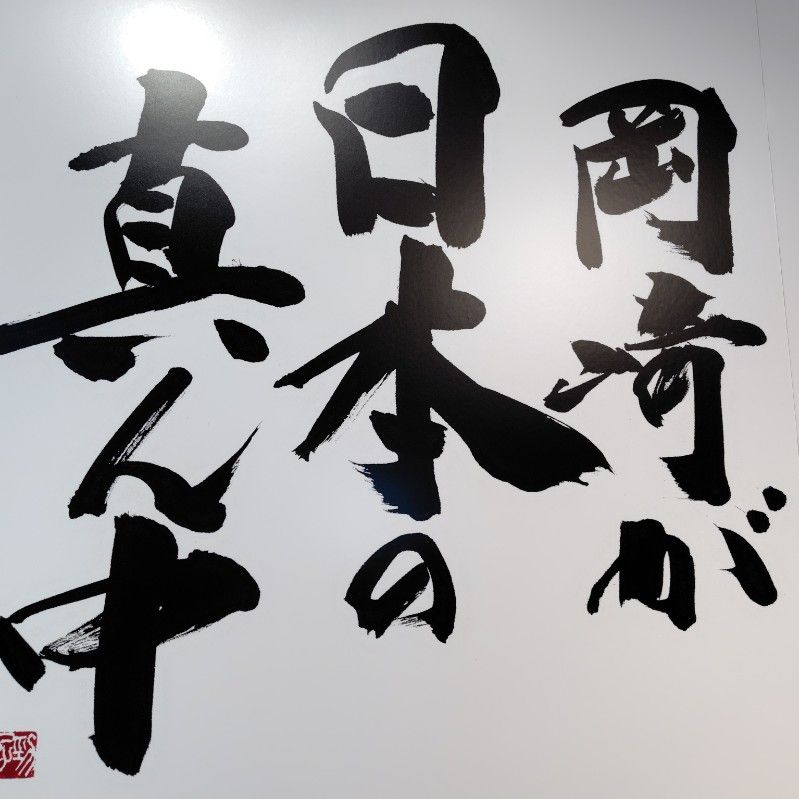 岡崎が
日本の
真ん中